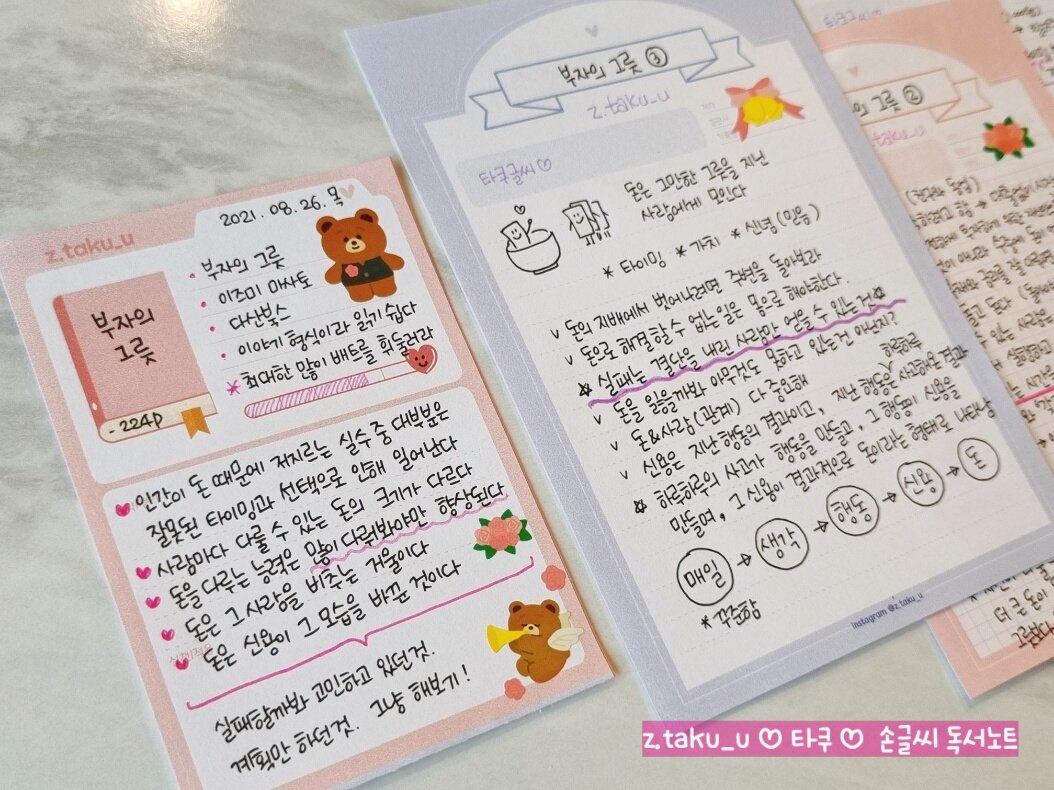 z.taku_u
2021. 08. 26. 목
부자의
그릇
- 224P
• 부자의 그릇
• 이즈미 마사토
• 다산북스
• 이야기 형식이라 읽기 쉽다
* 최대한 많이 배트를 휘둘러라
인간이 돈 때문에 저지르는 실수 중 대부분은
잘못된 타이밍과 선택으로 인해 일어난다
사람마다 다룰 수 있는 돈의 크기가 다르다
돈을 다루는 능력은 많이 다뤄봐야만 향상된다
돈은 그 사람을 비추는 거울이다
돈은 신용이 그 모습을 바꾼 것이다
실패할까봐 고민하고 있던 것.
계획만 하던 것. 그냥 해보기!
부자의 그릇 ③
z.taku_u
타쿠글씨 ♡
돈은 그만한 그릇을 지닌
사람에게 모인다
* 타이밍 * 가치 * 신념 (믿음)
v 돈의 지배에서 벗어나려면 주변을 돌아보라
v 돈으로 해결할 수 없는 일은 몸으로 해야 한다.
☆ 실패는 결단을 내린 사람만 얻을 수 있는 것☆
v 돈을 잃을까봐 아무것도 못하고 있는 건 아닌지?
v 돈&사람(관계) 다 중요해
v 신용은 지난 행동의 결과이고, 지난 행동은 하루하루 사고해온 결과
☆ 하루하루의 사고가 행동을 만들고, 그 행동이 신용을
만들며, 그 신용이 결과적으로 돈이라는 형태로 나타남
매일 → 생각 → 행동 → 신용 → 돈
* 꾸준함
instagram @z.taku_u
부자의 그릇 ②
z.taku_u
더 큰 돈이
z.taku_u ♡ 타쿠 ♡ 손글씨 독서노트